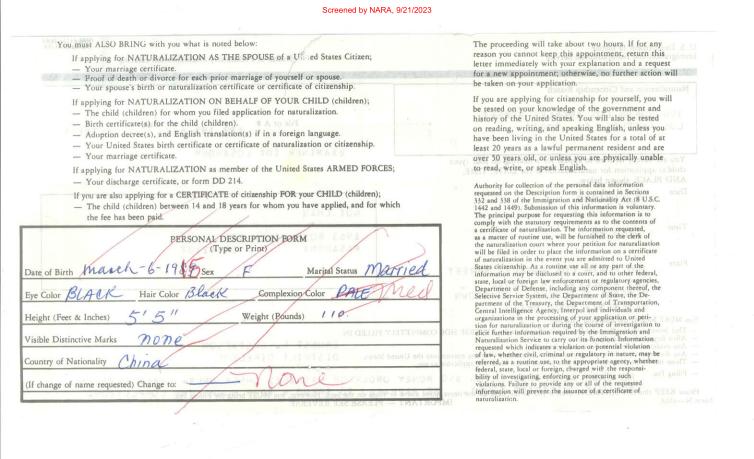 Screened by NARA, 9/21/2023
You must ALSO BRING with you what is noted below:
If applying for NATURALIZATION AS THE SPOUSE of a United States Citizen;
— Your marriage certificate.
— Proof of death or divorce for each prior marriage of yourself or spouse.
— Your spouse's birth or naturalization certificate or certificate of citizenship.
If applying for NATURALIZATION ON BEHALF OF YOUR CHILD (children);
— The child (children) for whom you filed application for naturalization.
— Birth certificate(s) for the child (children).
— Adoption decree(s), and English translation(s) if in a foreign language.
— Your United States birth certificate or certificate of naturalization or citizenship.
— Your marriage certificate.
If applying for NATURALIZATION as member of the United States ARMED FORCES;
— Your discharge certificate, or form DD 214.
If you are also applying for a CERTIFICATE of citizenship FOR your CHILD (children);
— The child (children) between 14 and 18 years for whom you have applied, and for which
the fee has been paid.
PERSONAL DESCRIPTION FORM
(Type or Print)
Date of Birth March-6- Sex F Marital Status Married
Eye Color BLACK Hair Color Black Complexion Color PALE Med
Height (Feet & Inches) 5' 5" Weight (Pounds) 110
Visible Distinctive Marks none
Country of Nationality China
(If change of name requested) Change to: none
The proceeding will take about two hours. If for any
reason you cannot keep this appointment, return this
letter immediately with your explanation and a request
for a new appointment; otherwise, no further action will
be taken on your application.
If you are applying for citizenship for yourself, you will
be tested on your knowledge of the government and
history of the United States. You will also be tested
on reading, writing, and speaking English, unless you
have been living in the United States for a total of at
least 20 years as a lawful permanent resident and are
over 50 years old, or unless you are physically unable
to read, write, or speak English.
Authority for collection of the personal data information
requested on the Description form is contained in Sections
332 and 338 of the Immigration and Nationality Act (8 U.S.C.
1442 and 1449). Submission of this information is voluntary.
The principal purpose for requesting this information is to
comply with the statutory requirements as to the contents of
a certificate of naturalization. The information requested,
as a matter of routine use, will be furnished to the clerk of
the naturalization court where your petition for naturalization
will be filed in order to place the information on a certificate
of naturalization in the event you are admitted to United
States citizenship. As a routine use all or any part of the
information may be disclosed to a court, and to other federal,
state, local or foreign law enforcement or regulatory agencies,
Department of Defense, including any component thereof, the
Selective Service System, the Department of State, the De-
partment of the Treasury, the Department of Transportation,
Central Intelligence Agency, Interpol and individuals and
organizations in the processing of your application or peti-
tion for naturalization or during the course of investigation to
elicit further information required by the Immigration and
Naturalization Service to carry out its function. Information
requested which indicates a violation or potential violation
of law, whether civil, criminal or regulatory in nature, may be
referred, as a routine use, to the appropriate agency, whether
federal, state, local or foreign, charged with the responsi-
bility of investigating, enforcing or prosecuting such
violations. Failure to provide any or all of the requested
information will prevent the issuance of a certificate of
naturalization.